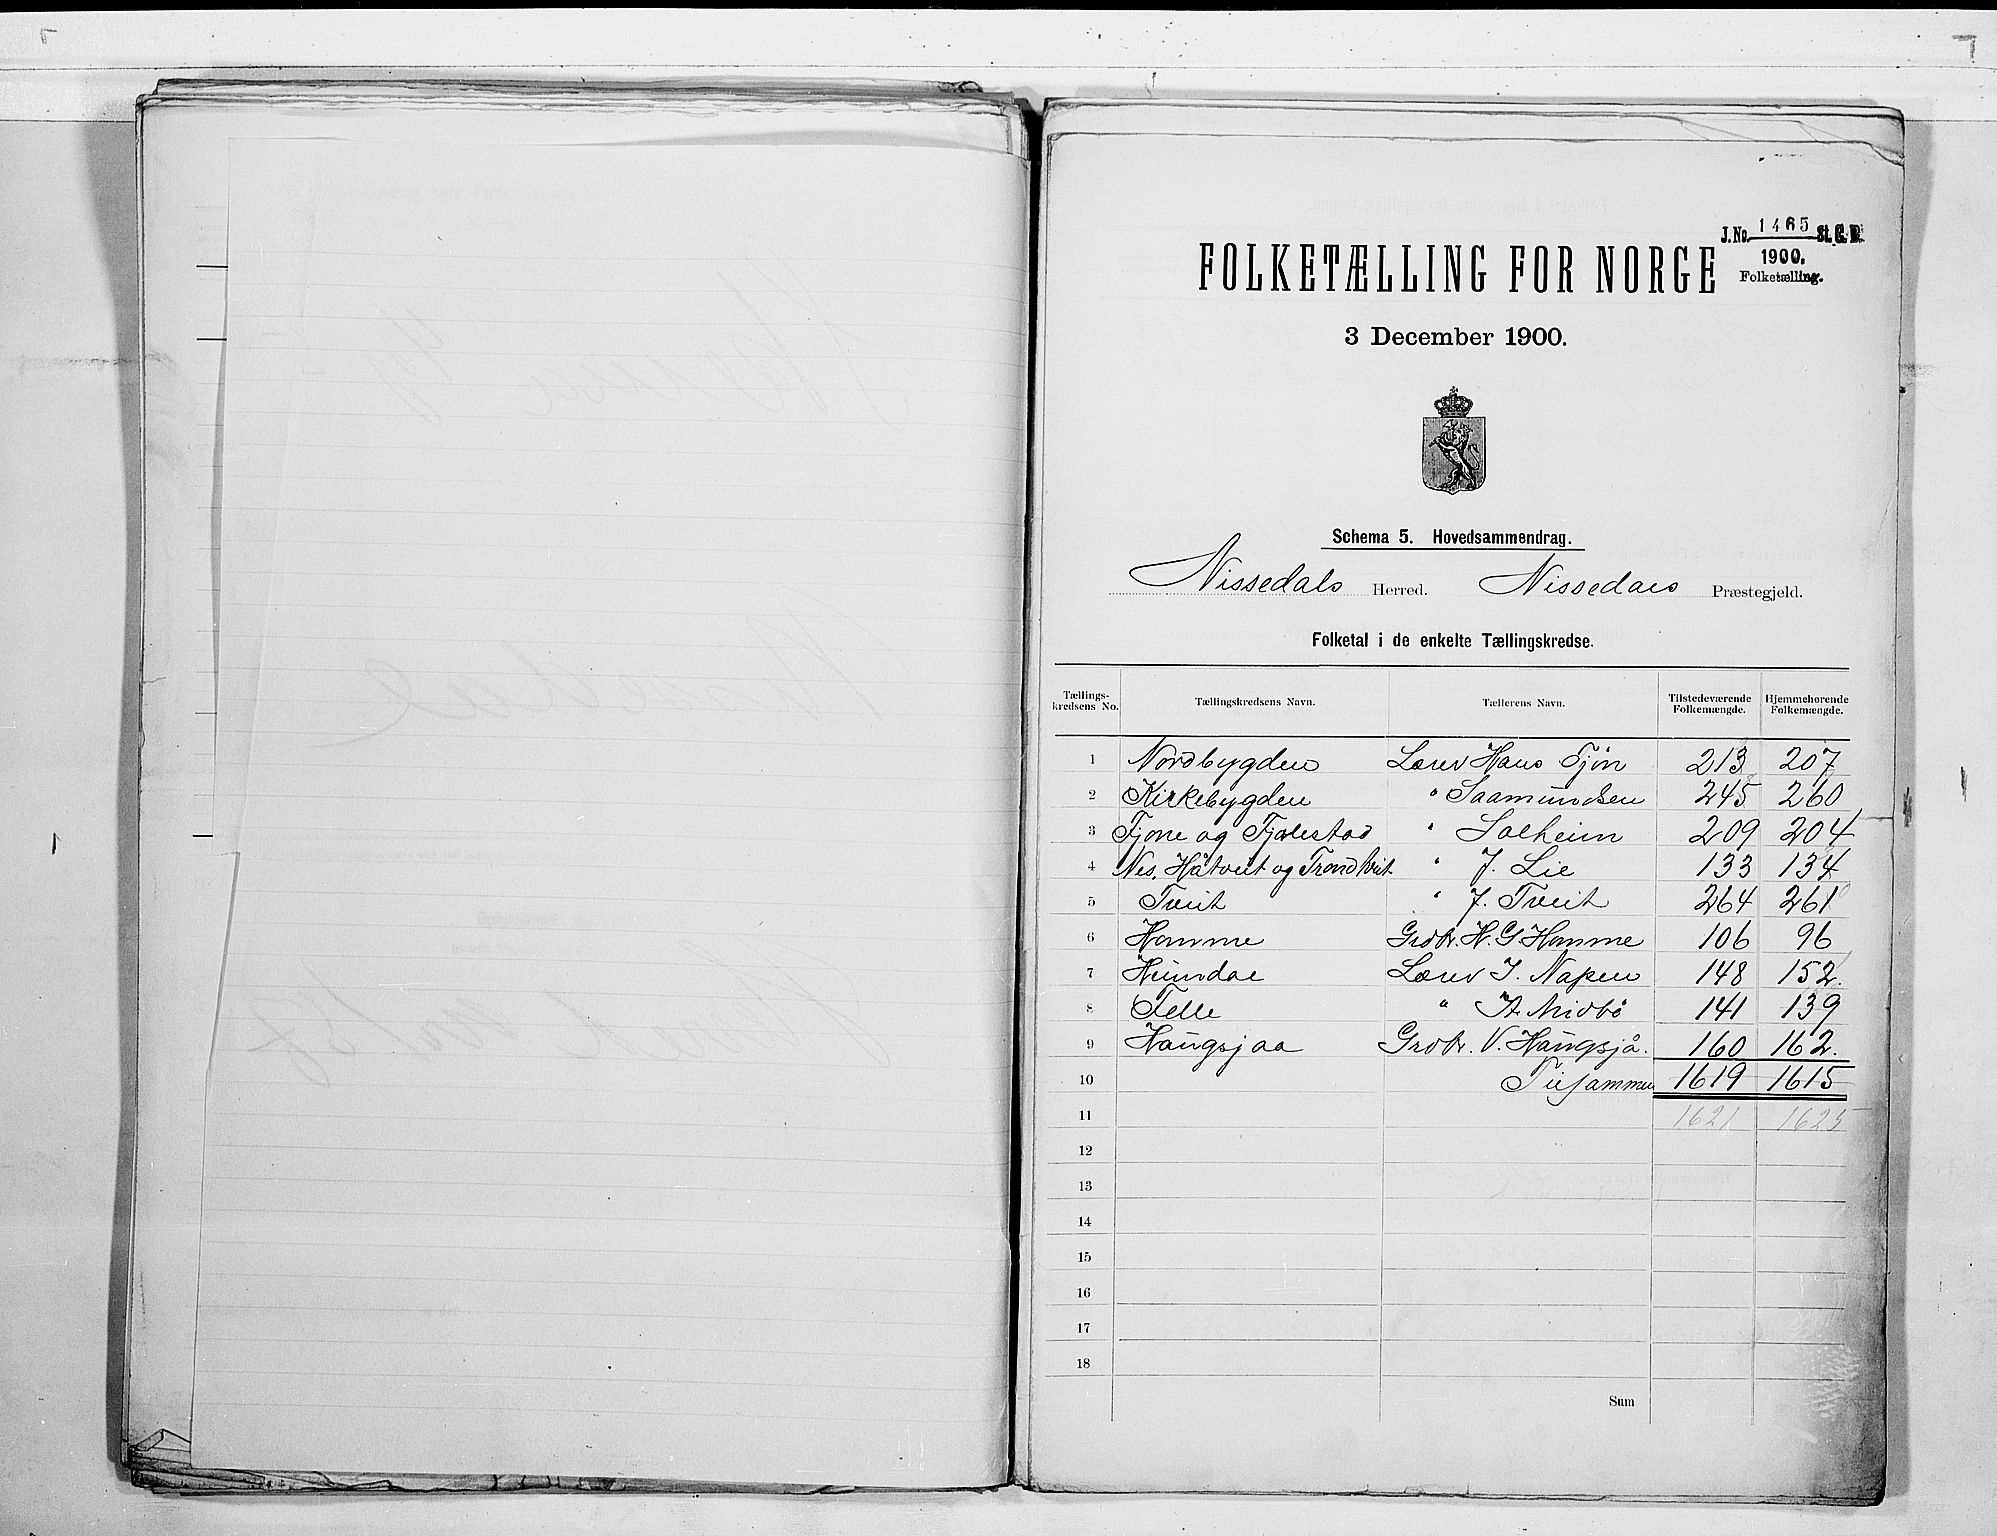 J. No. 1465 St. C. B.
1900.
Folketælling.
FOLKETÆLLING FOR NORGE
3 December 1900.
Schema 5. Hovedsammendrag.
Nissedals Herred. Nissedals Præstegjeld.
Folketal i de enkelte Tællingskredse.
Tællings-kredsens No. Tællingskredsens Navn. Tællerens Navn. Tilstedeværende Folkemængde. Hjemmehørende Folkemængde.
1 Nordbygden Lærer Hans Tjøn 213 207
2 Kirkebygden " Saamundsen 245 260
3 Fjone og Fjalestad " Solheim 209 204
4 Nes, Håtveit og Trondtveit " J. Lie 133 134
5 Tveit " J. Tveit 264 261
6 Homme Grdbr. H. G. Homme 106 96
7 Heimdal Lærer J. Napen 148 152.
8 Felle " A. Midbö 141 139
9 Haugsjaa Grdbr. V. Haugsjå. 160 162.
10 Tilsammen 1619 1615
11 1621 1625
12
13
14
15
16
17
18
Sum